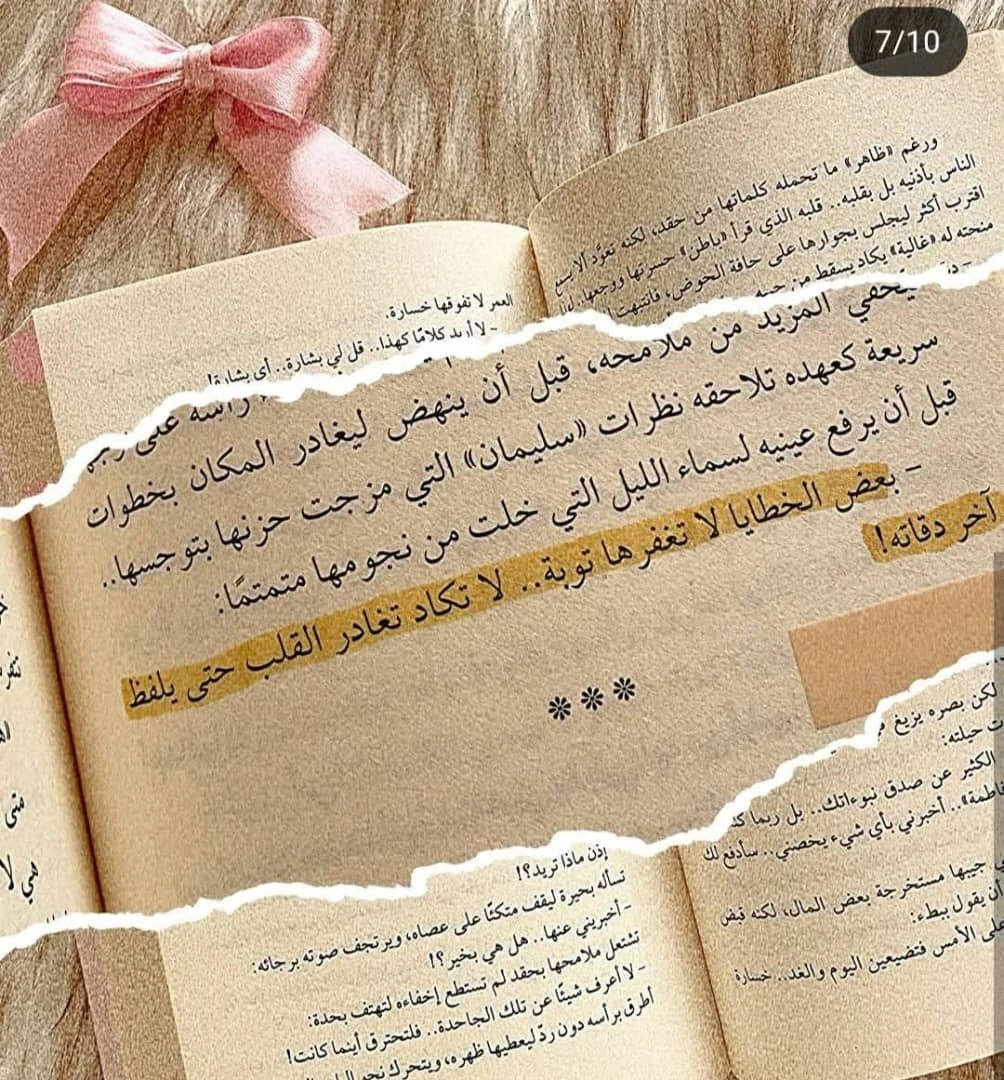 7/10
ورغم «ظاهر» ما تحمله كلماتها من حقد، لكنه تعوَّد ألا يسمع
الناس بأذنيه بل بقلبه.. قلبه الذي قرأ «باطن» حسرتها ووجعها. لذا
اقترب أكثر ليجلس بجوارها على حافة الحوض، فانتبهت
منحته له «غالية» يكاد يسقط من جيبه
العمر لا تفوقها خسارة.
- لا أريد كلامًا كهذا.. قل لي بشارة.. أي بشارة!
رأسه على
يخفي المزيد من ملامحه، قبل أن ينهض ليغادر المكان بخطوات
سريعة كعهده تلاحقه نظرات «سليمان» التي مزجت حزنها بتوجسها..
قبل أن يرفع عينيه لسماء الليل التي خلت من نجومها متمتمًا:
- بعض الخطايا لا تغفرها توبة.. لا تكاد تغادر القلب حتى يلفظ
آخر دقاته!
***
متى
هي لا
لكن بصره يزيغ
حيلته:
الكثير عن صدق نبوءاتك.. بل ربما
فاطمة».. أخبرني بأي شيء يخصني.. سأدفع لك
جيبها مستخرجة بعض المال، لكنه قبض
أن يقول ببطء:
على الأمس فتضيعين اليوم والغد.. خسارة
إذن ماذا تريد؟!
تسأله بحيرة ليقف متكئًا على عصاه، ويرتجف صوته برجائه:
- أخبريني عنها.. هل هي بخير؟!
تشتعل ملامحها بحقد لم تستطع إخفاءه لتهتف بحدة:
- لا أعرف شيئًا عن تلك الجاحدة.. فلتحترق أينما كانت!
أطرق برأسه دون ردّ ليعطيها ظهره، ويتحرك نحو